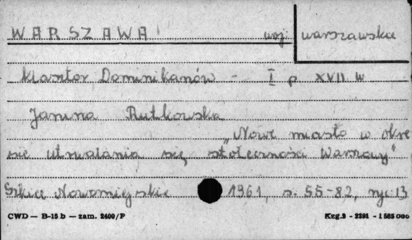 WARSZAWA woj. warszawskie
Klasztor Dominikanów - I p XVII w
Janina Rutkowska
„Nowe miasto w okre
sie utrwalania się stołeczności Warszawy"
Szkice Nowomiejskie 1961, s. 55-82, ryc 13
CWD — B-15 b — zam. 2400/P Kzg.3 - 2281 - 1 565 000